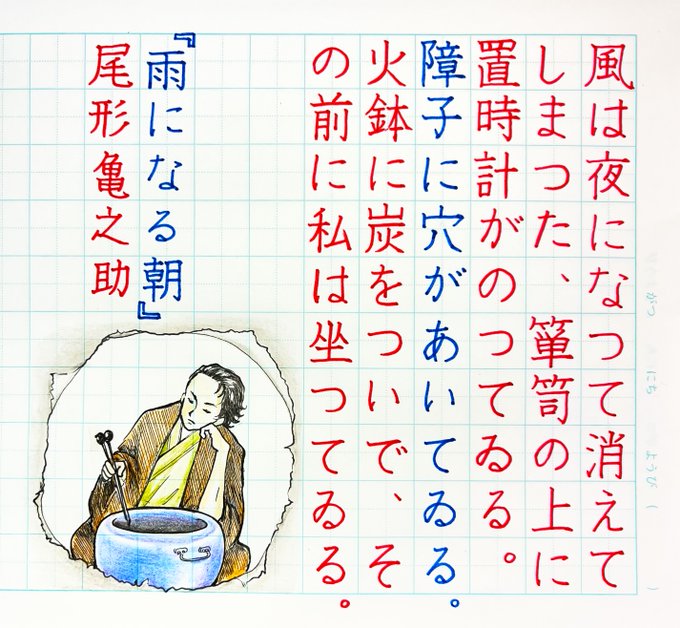 がつ にち ようび ( )
風は夜になつて消えて
しまつた、箪笥の上に
置時計がのつてゐる。
障子に穴があいてゐる。
火鉢に炭をついで、そ
の前に私は坐つてゐる。
『雨になる朝』
尾形亀之助